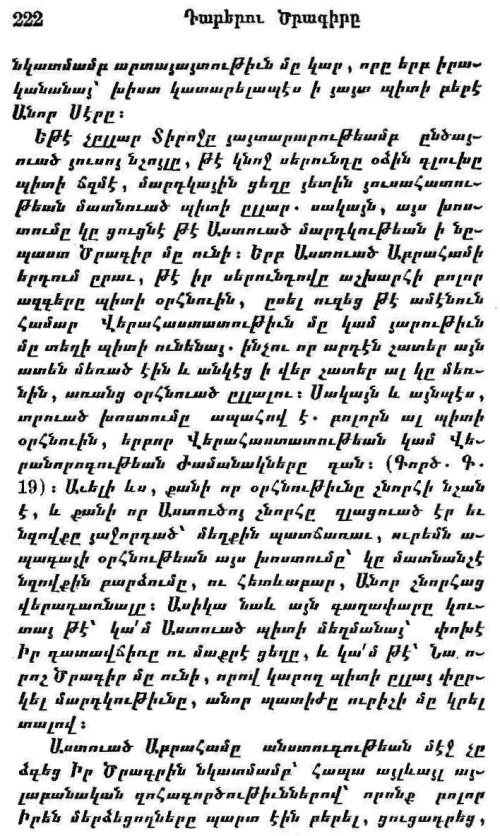 222 Դարերու Ծրագիրը
նկատմամբ արտայայտութիւն մը կար, որը երբ իրա-
կանանայ՝ խիստ կատարելապէս ի յայտ պիտի բերէ
Անոր Սէրը:
Եթէ չըլլար Տիրոջը յայտարարութեամբ ընծայ-
ուած յուսոյ նշոյլը, թէ կնոջ սերունդը օձին գլուխը
պիտի ճզմէ, մարդկային ցեղը յետին յուսահատու-
թեան մատնուած պիտի ըլլար. սակայն, այս խոս-
տումը կը ցուցնէ թէ Աստուած մարդկութեան ի նը-
պաստ Ծրագիր մը ունի: Երբ Աստուած Աբրահամի
երդում ըրաւ, թէ իր սերունդովը աշխարհի բոլոր
ազգերը պիտի օրհնուին, ըսել ուզեց թէ ամէնուն
համար Վերահաստատութիւն մը կամ յարութիւն
մը տեղի պիտի ունենայ. ինչու որ արդէն շատեր այն
ատեն մեռած էին և անկէց ի վեր շատեր ալ կը մեռ-
նին, առանց օրհնուած ըլլալու: Սակայն և այնպէս,
տրուած խոստումը ապահով է. բոլորն ալ պիտի
օրհնուին, երբոր Վերահաստատութեան կամ Վե-
րանորոգութեան Ժամանակները գան: (Գործ. Գ.
19): Աւելի ևս, քանի որ օրհնութիւնը շնորհի նշան
է, և քանի որ Աստուծոյ շնորհը զլացուած էր եւ
նզովքը յաջորդած՝ մեղքին պատճառաւ, ուրեմն ա-
պագայի օրհնութեան այս խոստումը՝ կը մատնանշէ
նզովքին բարձումը, ու հետևաբար, Անոր շնորհաց
վերադառնալը: Ասիկա նաև այն գաղափարը կու-
տայ թէ՝ կա՛մ Աստուած պիտի մեղմանայ՝ փոխէ
Իր դատավճիռը ու մաքրէ ցեղը, և կա՛մ թէ՝ Նա ո-
րոշ Ծրագիր մը ունի, որով կարող պիտի ըլլայ փըր-
կել մարդկութիւնը, անոր պատիժը ուրիշի մը կրել
տալով:
Աստուած Աբրահամը անստուգութեան մէջ չը
ձգեց Իր Ծրագրին նկատմամբ՝ հապա այլևայլ այ-
լաբանական զոհագործութիւններով՝ որոնք բոլոր
Իրեն մերձեցողները պարտ էին բերել, ցուցադրեց,